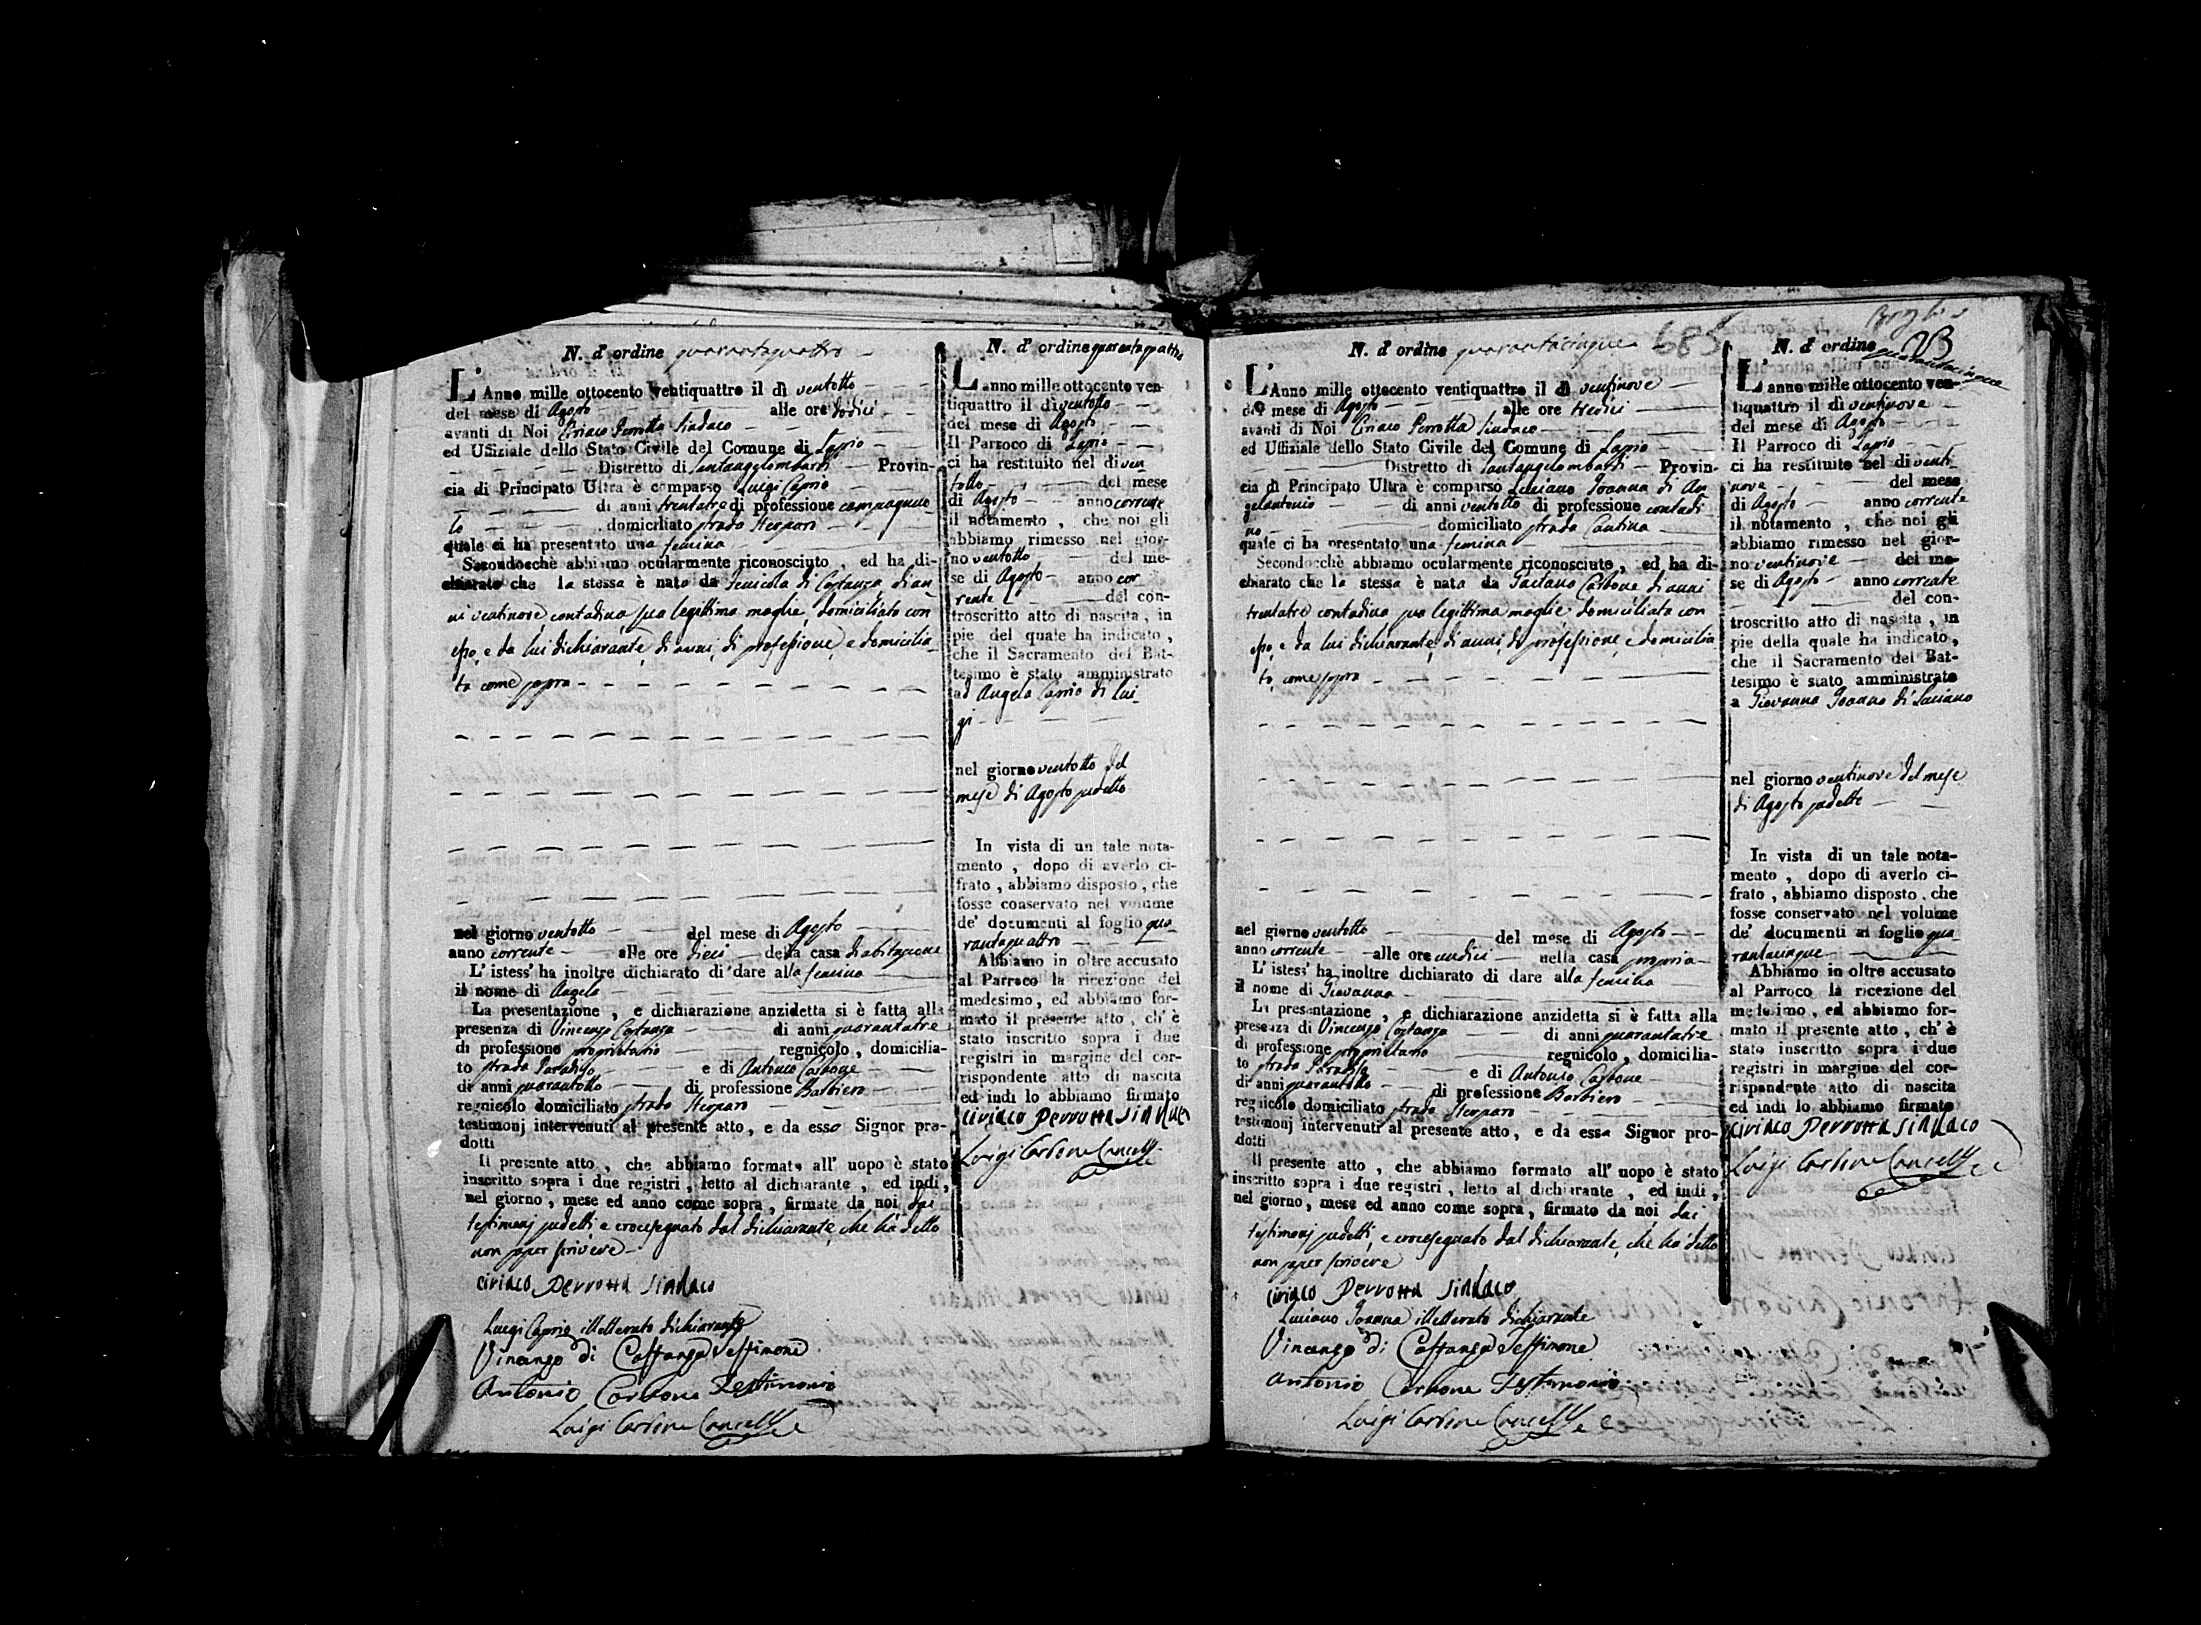 N. d' ordine quarantaquattro
L'Anno mille ottocento ventiquattro il dì ventotto
del mese di Agosto alle ore dodici
avanti di Noi Ciriaco Perrotta Sindaco
ed Uffiziale dello Stato Civile del Comune di Lapio
Distretto di Santangelombardi Provin-
cia di Principato Ultra è comparso Luigi Caprio
di anni trentatre di professione campagnuo
lo domiciliato strada
quale ci ha presentato una femina
Secondocchè abbiamo ocularmente riconosciuto, ed ha di-
chiarato che la stessa è nata da di Costanza di an
ni ventinove, contadina, sua legittima moglie, domiciliata con
esso, e da lui dichiarante, di anni, di professione, e domicilia
to come sopra
nel giorno ventotto del mese di Agosto
anno corrente alle ore dieci della casa di abitazione
L' istess' ha inoltre dichiarato di dare alla femina
il nome di Angela
La presentazione, e dichiarazione anzidetta si è fatta alla
presenza di Vincenzo Costanza di anni quarantatre
di professione proprietario regnicolo, domicilia-
to strada e di Antonio Carbone
di anni quarantotto di professione Barbiero
regnicolo domiciliato strada
testimonj intervenuti al presente atto, e da esso Signor pro-
dotti
Il presente atto, che abbiamo formato all' uopo è stato
inscritto sopra i due registri, letto al dichiarante, ed indi,
nel giorno, mese ed anno come sopra, firmato da noi, dai
testimonj sudetti, e crocesegnato dal dichiarante, che ha detto
non saper scrivere
Ciriaco Perrotta Sindaco
Luigi Caprio illetterato dichiarante
Vincenzo di Costanza Testimone
Antonio Carbone Testimonio
Luigi Carbone Cancelle
N. d' ordine quarantaquattro
L'anno mille ottocento ven-
tiquattro il dì ventotto
del mese di Agosto
Il Parroco di Lapio
ci ha restituito nel dì ven
totto del mese
di Agosto anno corrente
il notamento, che noi gli
abbiamo rimesso nel gior-
no ventotto del me-
se di Agosto anno cor
rente del con-
troscritto atto di nascita, in
pie del quale ha indicato,
che il Sacramento del Bat-
tesimo è stato amministrato
ad Angela Caprio di Lui
gi
nel giorno ventotto del
mese di Agosto sudetto
In vista di un tale nota-
mento, dopo di averlo ci-
frato, abbiamo disposto, che
fosse conservato nel volume
de' documenti al foglio qua
rantaquattro
Abbiamo in oltre accusato
al Parroco la ricezione del
medesimo, ed abbiamo for-
mato il presente atto, ch' è
stato inscritto sopra i due
registri in margine del cor-
rispondente atto di nascita
ed indi lo abbiamo firmato
Ciriaco Perrotta Sindaco
Luigi Carbone Cancelle
N. d' ordine quarantacinque 685
L'Anno mille ottocento ventiquattro il dì ventinove
del mese di Agosto alle ore tredici
avanti di Noi Ciriaco Perrotta Sindaco
ed Uffiziale dello Stato Civile del Comune di Lapio
Distretto di Santangelombardi Provin-
cia di Principato Ultra è comparso Luciano Joanna di An
gelantonio di anni ventotto di professione contadi
no domiciliato strada Cantina
quale ci ha presentato una femina
Secondocchè abbiamo ocularmente riconosciuto, ed ha di-
chiarato che la stessa è nata da Gaetana Carbone di anni
trentatre contadina sua legittima moglie domiciliata con
esso, e da lui dichiarante, di anni, di professione, e domicilia
to, come sopra
nel giorno ventotto del mese di Agosto
anno corrente alle ore undici nella casa propria
L' istess' ha inoltre dichiarato di dare alla femina
il nome di Giovanna
La presentazione, e dichiarazione anzidetta si è fatta alla
presenza di Vincenzo Costanza di anni quarantatre
di professione proprietario regnicolo, domicilia-
to strada e di Antonio Carbone
di anni quarantotto di professione Barbiero
regnicolo domiciliato strada
testimonj intervenuti al presente atto, e da esso Signor pro-
dotti
Il presente atto, che abbiamo formato all' uopo è stato
inscritto sopra i due registri, letto al dichiarante, ed indi,
nel giorno, mese ed anno come sopra, firmato da noi dai
testimonj sudetti, e crocesegnato dal dichiarante, che ha detto
non saper scrivere
Ciriaco Perrotta Sindaco
Luciano Joanna illetterato dichiarante
Vincenzo di Costanza Testimone
Antonio Carbone Testimonio
Luigi Carbone Cancelle
N. d' ordine
quarantacinque
L'anno mille ottocento ven-
tiquattro il dì ventinove
del mese di Agosto
Il Parroco di Lapio
ci ha restituito nel dì venti
nove del mese
di Agosto anno corrente
il notamento, che noi gli
abbiamo rimesso nel gior-
no ventinove del me-
se di Agosto anno corrente
del con-
troscritto atto di nascita, in
pie della quale ha indicato,
che il Sacramento del Bat-
tesimo è stato amministrato
a Giovanna Joanna di Luciano
nel giorno ventinove del mese
di Agosto sudetto
In vista di un tale nota-
mento, dopo di averlo ci-
frato, abbiamo disposto, che
fosse conservato nel volume
de' documenti al foglio qua
rantacinque
Abbiamo in oltre accusato
al Parroco la ricezione del
medesimo, ed abbiamo for-
mato il presente atto, ch' è
stato inscritto sopra i due
registri in margine del cor-
rispondente atto di nascita
ed indi lo abbiamo firmato
Ciriaco Perrotta Sindaco
Luigi Carbone Cancelle